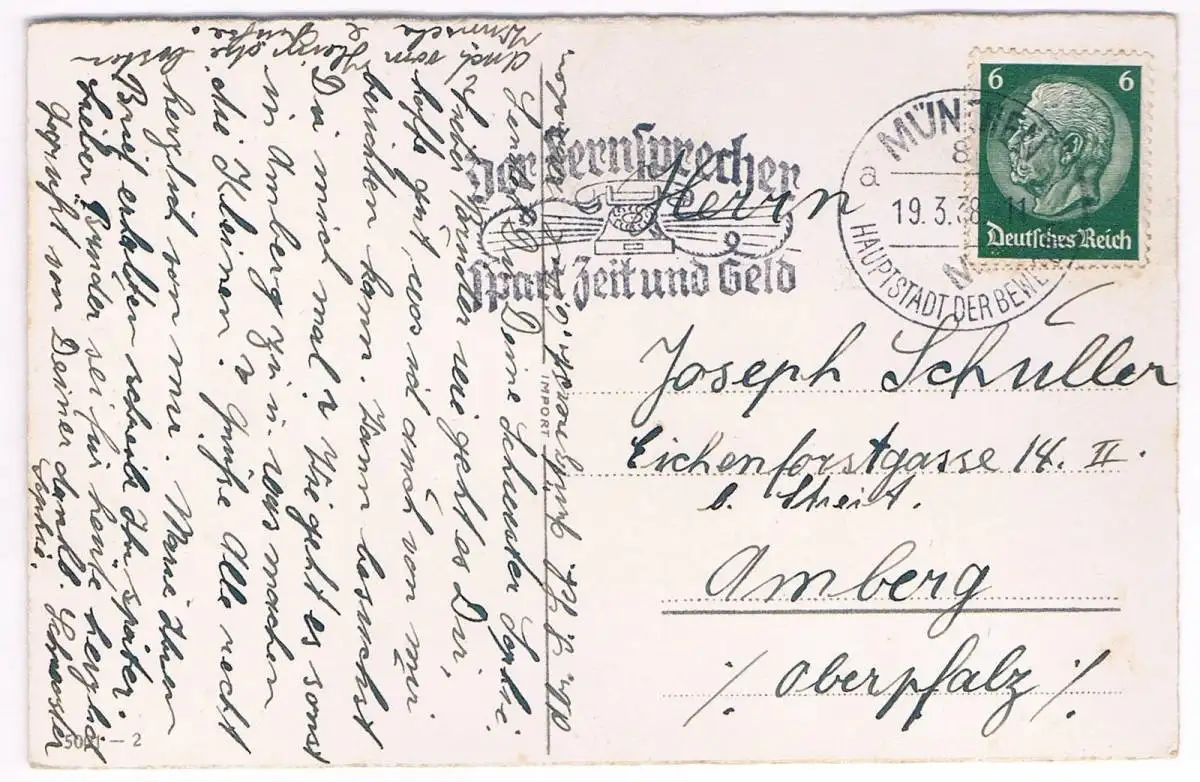 Der Fernsprecher
spart Zeit und Geld
MÜNCHEN
8
a
19.3.38-11
HAUPTSTADT DER BEWE
6 6
Deutsches Reich
Herrn
Joseph Schuller
Eichenforstgasse 18. II.
b. Streit.
Amberg
Oberpfalz
IMPORT
5001-2
Sendet Dir Deine Schwester Sophie.
Lieber Bruder wie geht es Dir,
hoffe gut, was ich auch von mir
berichten kann. Wann besuchst
Du mich mal? Wie geht es sonst
in Amberg zu u. was machen
die Kleinen? Grüße Alle recht
herzlich von mir. Marie Ihren
Brief erhalten schreib Ihr später.
Lieber Bruder sei für heute herzlich
gegrüßt von Deiner dankb. Schwester
Sophie.
Auch vom